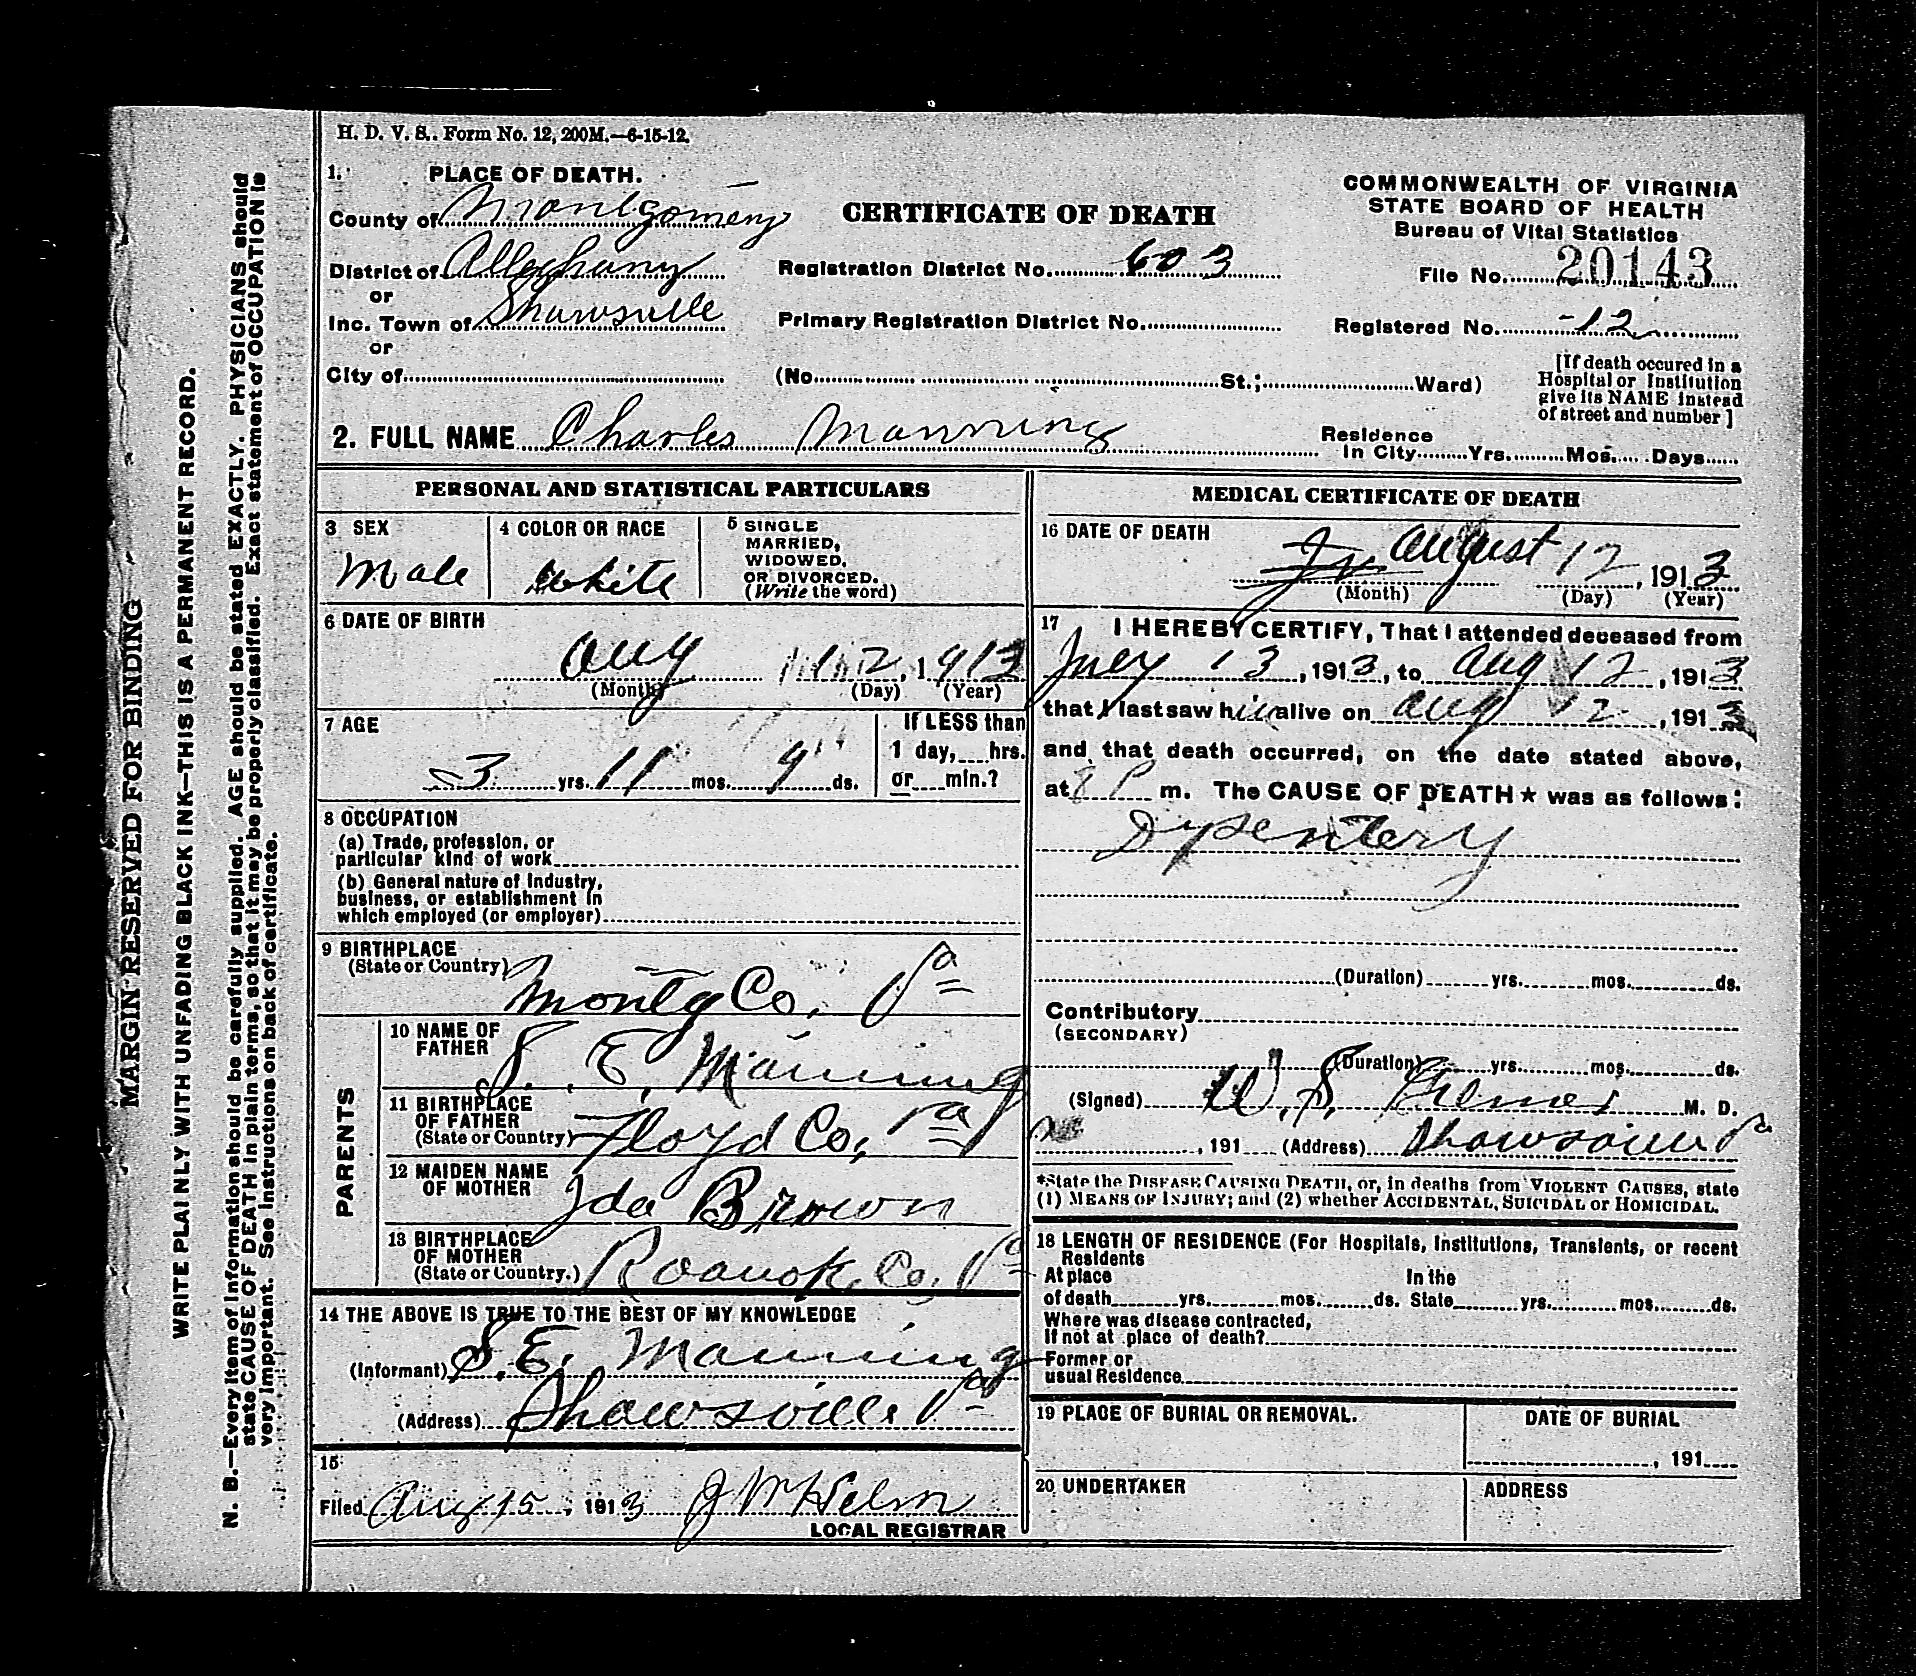 H. D. V. S.. Form No. 12, 200M.—6-15-12.
1. PLACE OF DEATH.
County of Montgomery
District of Alleghany
or
Inc. Town of Shawsville
or
City of
CERTIFICATE OF DEATH
Registration District No. 603
Primary Registration District No.
(No. St.; Ward)
COMMONWEALTH OF VIRGINIA
STATE BOARD OF HEALTH
Bureau of Vital Statistics
File No. 20143
Registered No. -12
[If death occured in a
Hospital or Institution
give its NAME instead
of street and number]
2. FULL NAME Charles Manning
Residence
In City Yrs. Mos. Days
PERSONAL AND STATISTICAL PARTICULARS
3 SEX
Male
4 COLOR OR RACE
White
5 SINGLE
MARRIED,
WIDOWED,
OR DIVORCED.
(Write the word)
6 DATE OF BIRTH
Aug 12, 1913
(Month) (Day) (Year)
7 AGE
3 yrs. 11 mos. 9 ds.
If LESS than
1 day, hrs.
or min.?
8 OCCUPATION
(a) Trade, profession, or
particular kind of work
(b) General nature of industry,
business, or establishment in
which employed (or employer)
9 BIRTHPLACE
(State or Country)
Montg Co, Va
PARENTS
10 NAME OF
FATHER
S. E. Manning
11 BIRTHPLACE
OF FATHER
(State or Country)
Floyd Co, Va
12 MAIDEN NAME
OF MOTHER
Ida Brown
13 BIRTHPLACE
OF MOTHER
(State or Country.)
Roanoke Co, Va
14 THE ABOVE IS TRUE TO THE BEST OF MY KNOWLEDGE
(Informant) S. E. Manning
(Address) Shawsville Va
15
Filed Aug 15, 1913 J M Helm
LOCAL REGISTRAR
MEDICAL CERTIFICATE OF DEATH
16 DATE OF DEATH
August 12, 1913
(Month) (Day) (Year)
17 I HEREBY CERTIFY, That I attended deceased from
July 13, 1913, to Aug 12, 1913
that I last saw him alive on Aug 12, 1913
and that death occurred, on the date stated above,
at 8 P m. The CAUSE OF DEATH★ was as follows:
Dysentery
(Duration) yrs. mos. ds.
Contributory
(SECONDARY)
(Duration) yrs. mos. ds.
(Signed) W. S. Gilmer M. D.
, 191 (Address) Shawsville Va
*State the DISEASE CAUSING DEATH, or, in deaths from VIOLENT CAUSES, state
(1) MEANS OF INJURY; and (2) whether ACCIDENTAL, SUICIDAL or HOMICIDAL.
18 LENGTH OF RESIDENCE (For Hospitals, Institutions, Transients, or recent
Residents
At place In the
of death yrs. mos. ds. State yrs. mos. ds.
Where was disease contracted,
If not at place of death?
Former or
usual Residence
19 PLACE OF BURIAL OR REMOVAL.
DATE OF BURIAL
, 191
20 UNDERTAKER
ADDRESS
MARGIN RESERVED FOR BINDING
WRITE PLAINLY WITH UNFADING BLACK INK—THIS IS A PERMANENT RECORD.
N. B.—Every item of information should be carefully supplied. AGE should be stated EXACTLY. PHYSICIANS should
state CAUSE OF DEATH in plain terms, so that it may be properly classified. Exact statement of OCCUPATION is
very important. See instructions on back of certificate.